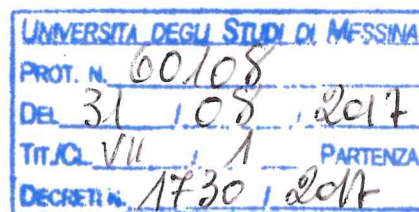 UNIVERSITA DEGLI STUDI DI MESSINA
PROT. N. 60108
DEL 31 / 08 / 2017
TIT./CL. VII / 1 PARTENZA
DECRETI N. 1730 / 2017